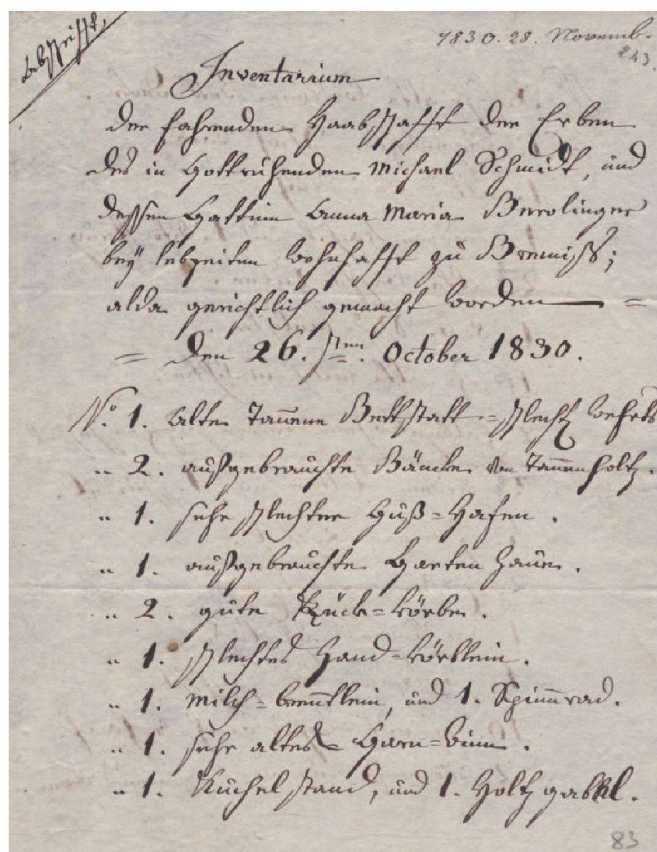 Abschrifft,
1830. 28. Novemb.
243.
Inventarium
der fahrenden Haabschafft der Erben
des in Gottruhenden Michael Schmidt, und
dessen Gattin Anna Maria
beÿ lebzeiten wohnhafft zu Bremiss;
alda gerichtlich gemacht worden =
= den 26.sten October 1830.
No. 1. alte Tannene Bettstatt = schlecht
" 2. außgebrauchte Bäncke von Tannenholtz.
" 1. sehr schlechter Guß=Hafen.
" 1. außgebrauchte Garten Haue.
" 2. gute Rück=Körbe.
" 1. schlechtes Hand=Körblein.
" 1. Milch= und 1. Spinnrad.
" 1. sehr altes = Garn=
" 1. Küchel stand, und 1. Holtz gabel.
83